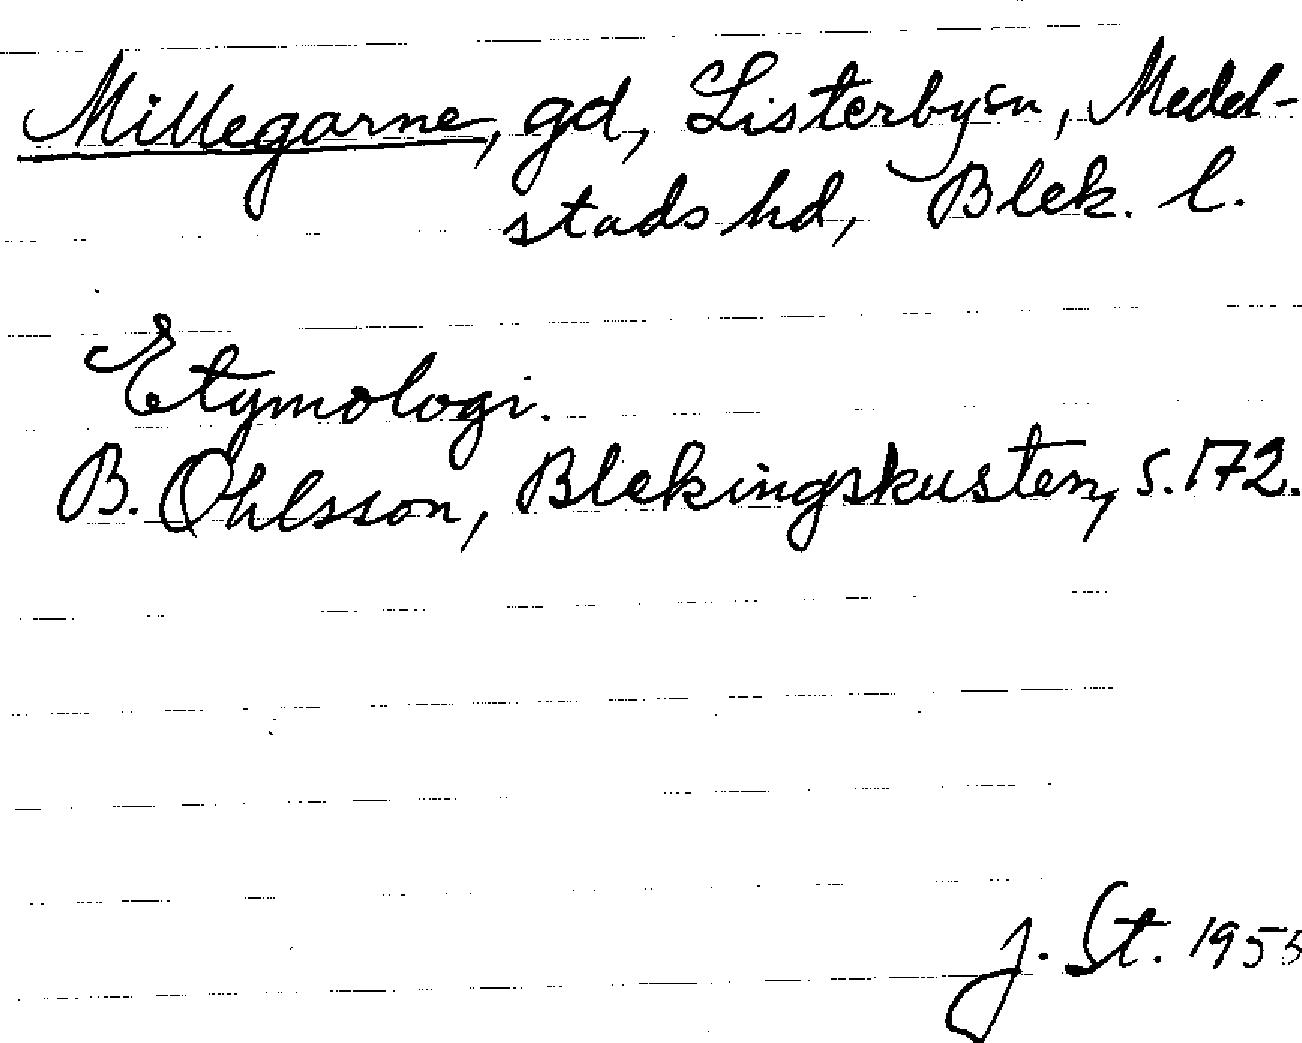 Millegarne, gd, Listerby sn, Medel-
stads hd, Blek. l.
Etymologi.
B. Ohlsson, Blekingskusten, s. 172.
J. St. 1953